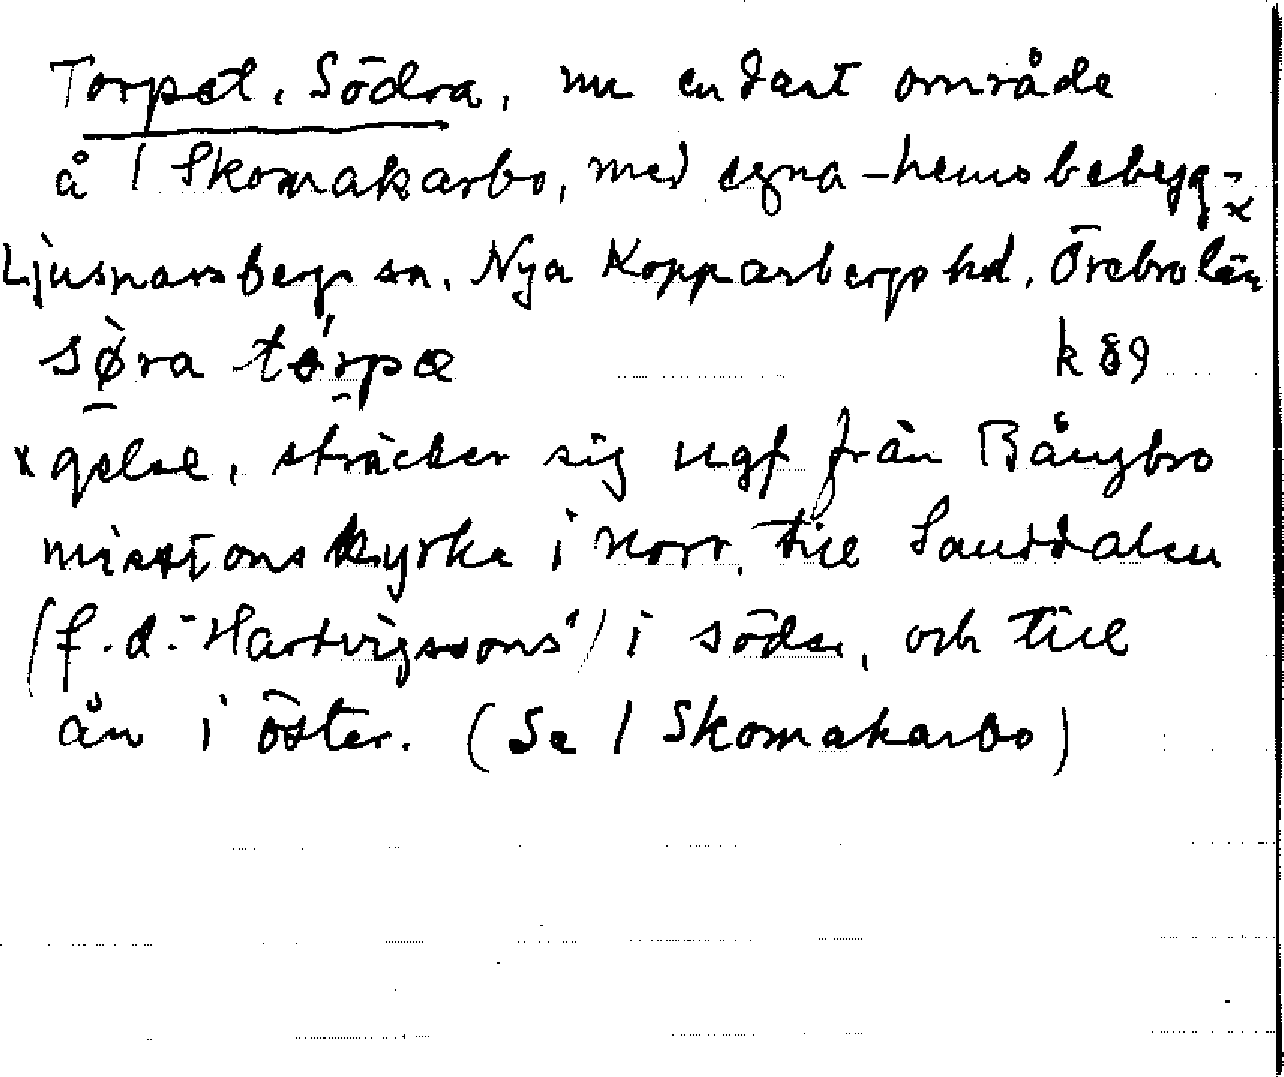 Torpet, Södra, nu endast område
å 1 Skomakarbo, med egna-hemsbebyg-x
Ljusnarsbergs sn. Nya Kopparbergs hd, Örebro län
sø̀ra tórpæ k 89
x gelse, sträcker sig ungf från Bångbro
missionskyrka i norr, till Sanddalen
(f.d. "Hartvigssons") i söder, och till
ån i öster. (Se 1 Skomakarbo)